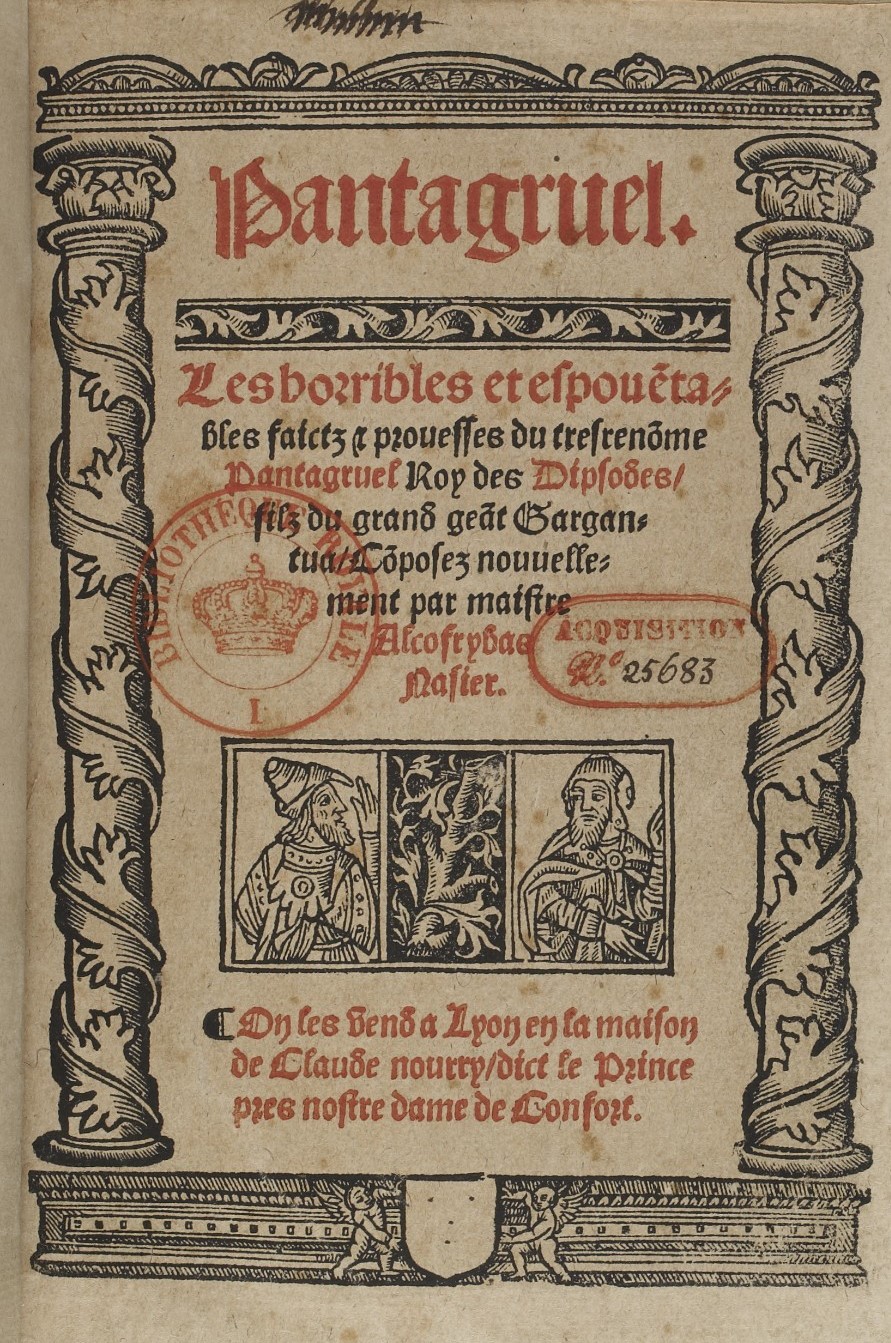 Pantagruel.
Les horribles et espouẽta-
bles faictz ⁊ prouesses du tresrenõme
Pantagruel Roy des Dipsodes/
filz du grand geãt Gargan-
tua/ Cõposez nouuelle-
ment par maistre
Alcofrybas
Nasier.
BIBLIOTHEQUE ROYALE
I.
ACQUISITION
N.º 25683
¶ On les vend a Lyon en la maison
de Claude nourry/ dict le Prince
pres nostre dame de Confort.